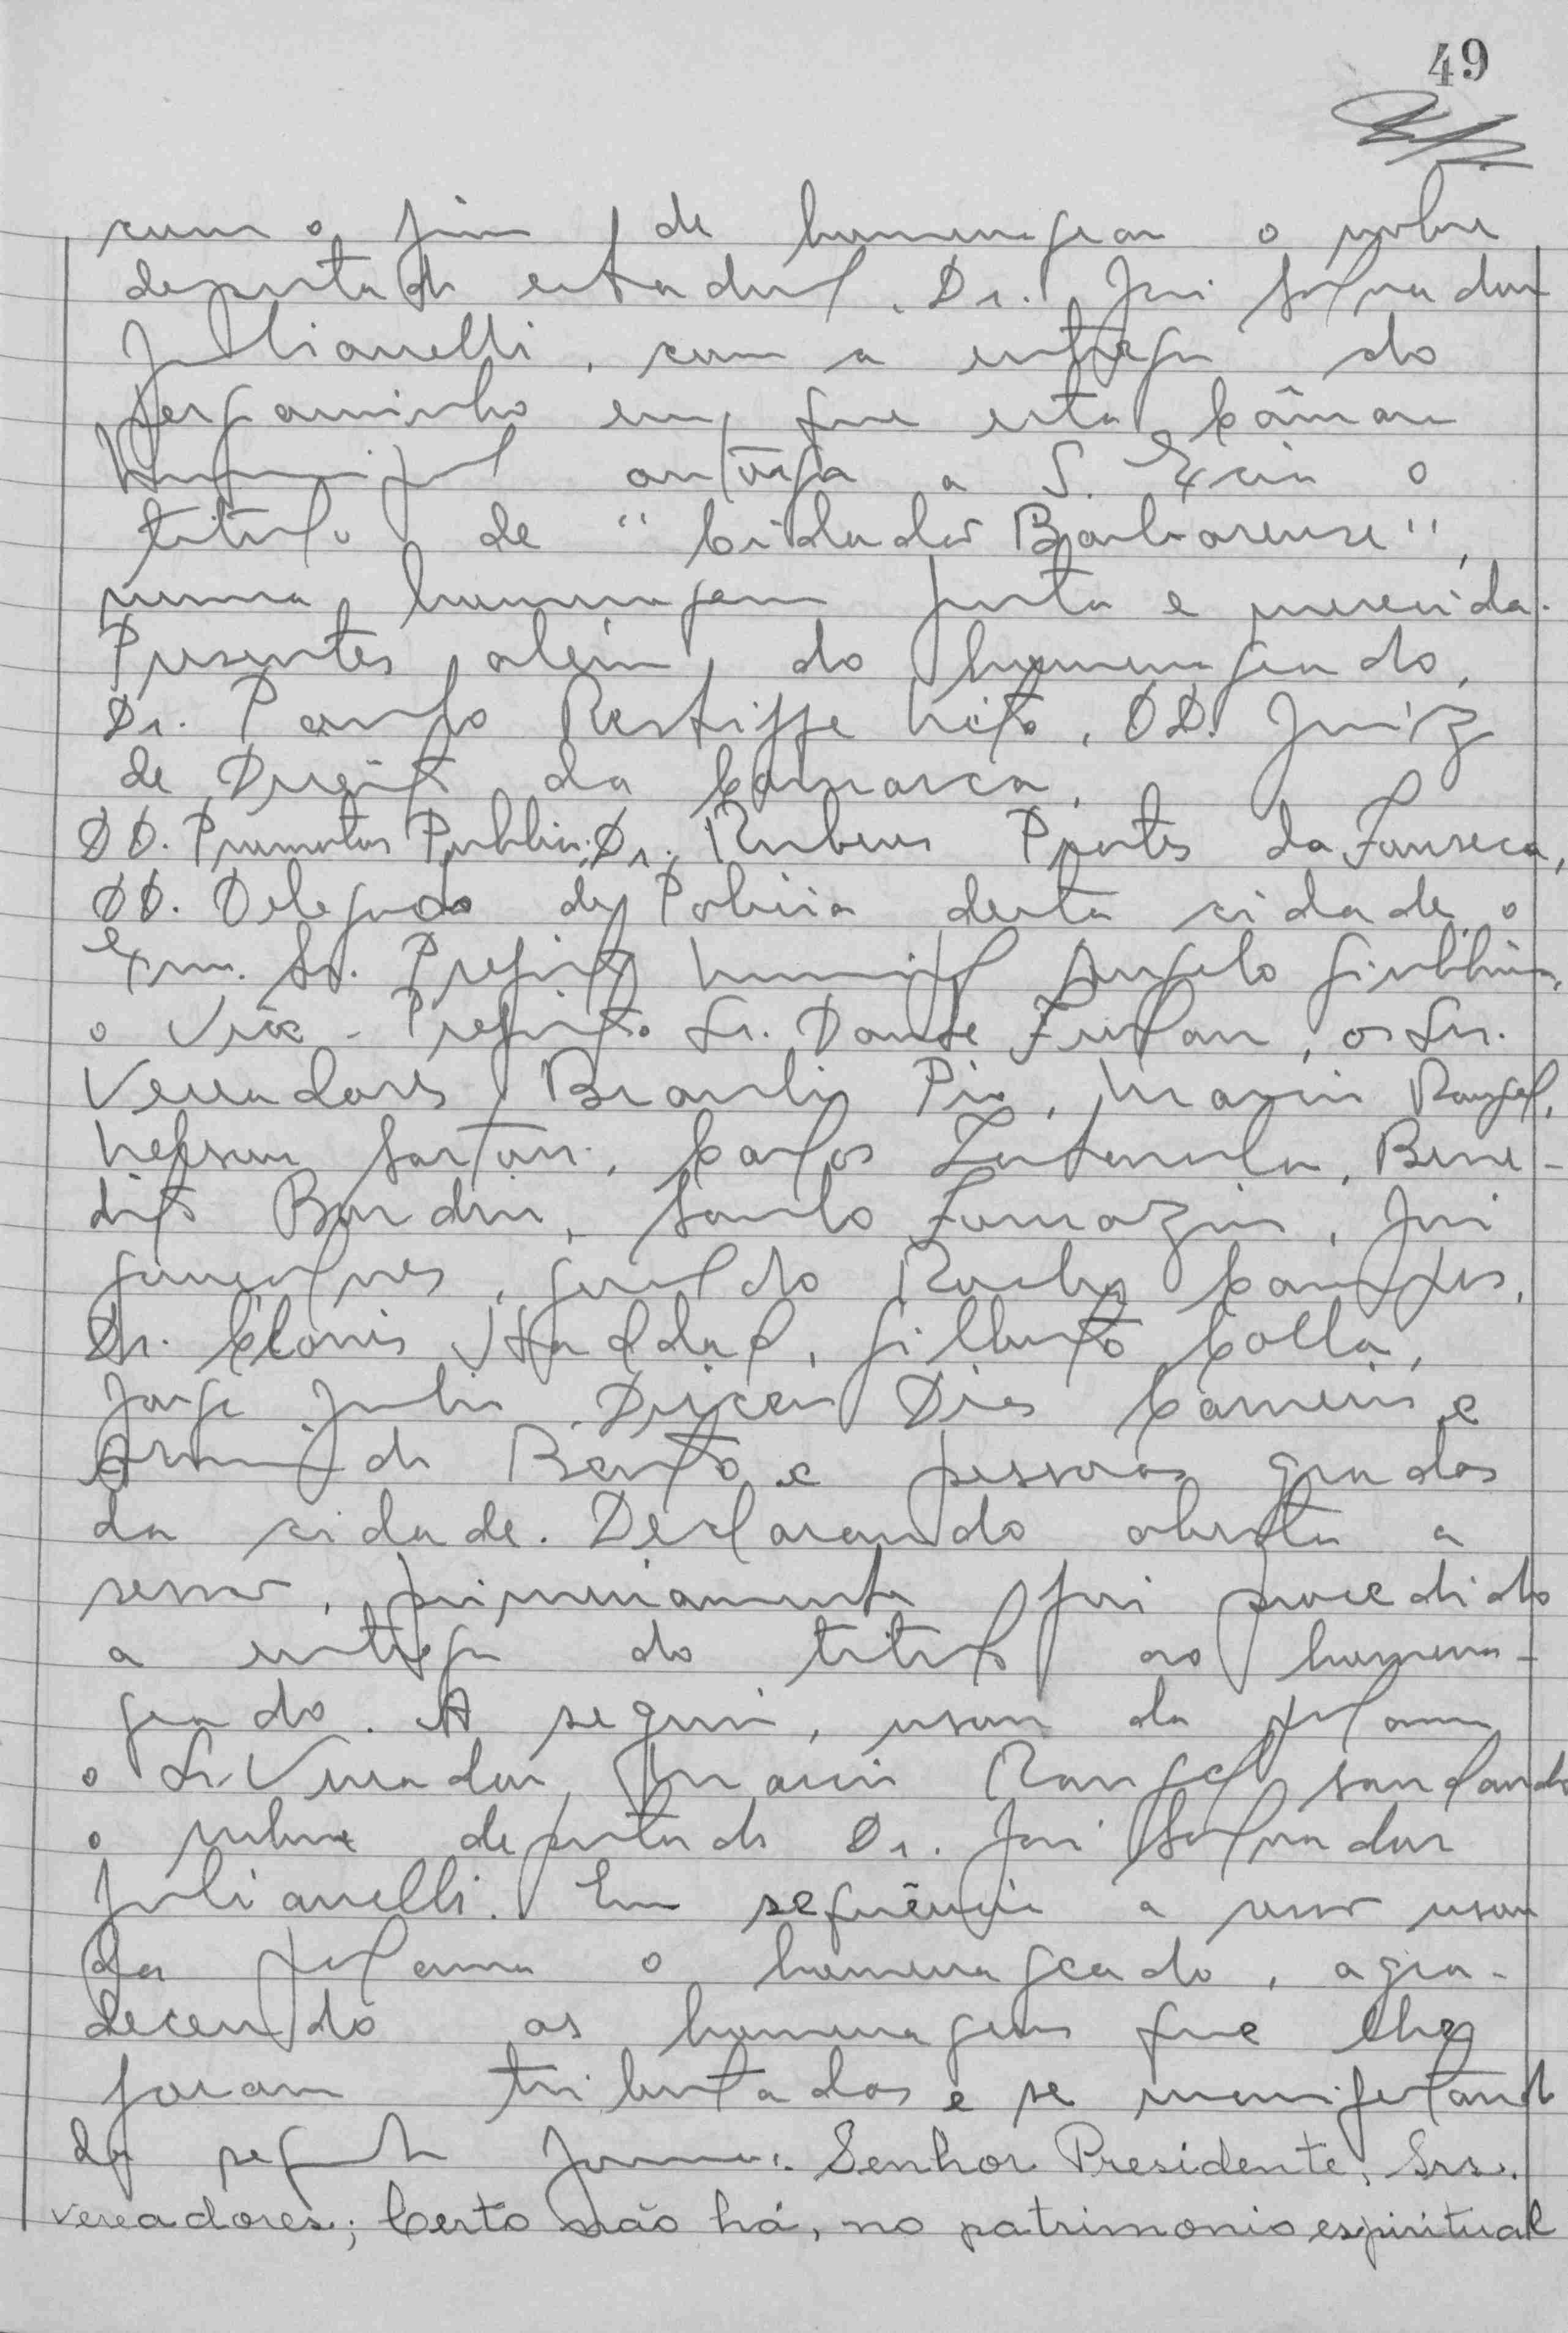 49
com o fim de homenagear o nobre
deputado estadual, Dr. José Salvador
Julianelli, com a entrega do
Pergaminho em que esta Câmara
Municipal outorga a S. Excia o
titulo de "Cidadão Barbarense",
numa homenagem justa e merecida.
Presentes além do homenageado,
Dr. Paulo Restiffe Neto, DD. Juiz
de Direito da Comarca,
DD. Promotor Publico, Dr. Rubens Pontes da Fonseca,
DD. Delegado de Policia desta cidade, o
Exmo. Sr. Prefeito Municipal Angelo Giubbina,
o Vice-Prefeito Sr. Dante Furlan, os Srs.
Vereadores Braulio Pio, Mario Rangel,
Nelson Sartori, Carlos Bene-
dito Bordin, Santo Fornazin, José
Gonçalves, Geraldo Rocha Campos,
Dr. Clovis Haddad, Gilberto Colla,
Jorge Julio, Dirceu Dias Carneiro e
Bento e pessoas gradas
da cidade. Declarando aberta a
sessão, primeiramente foi procedido
a entrega do titulo ao homena-
geado. A seguir, usou da palavra
o Sr. Vereador Mario Rangel saudando
o nobre deputado Dr. José Salvador
Julianelli. Em sequência a sessão usou
da palavra o homenageado, agra-
decendo as homenagens que lhe
foram tributadas e se manifestando
da seguinte forma: Senhor Presidente, Srs.
vereadores; Certo não há, no patrimonio espiritual